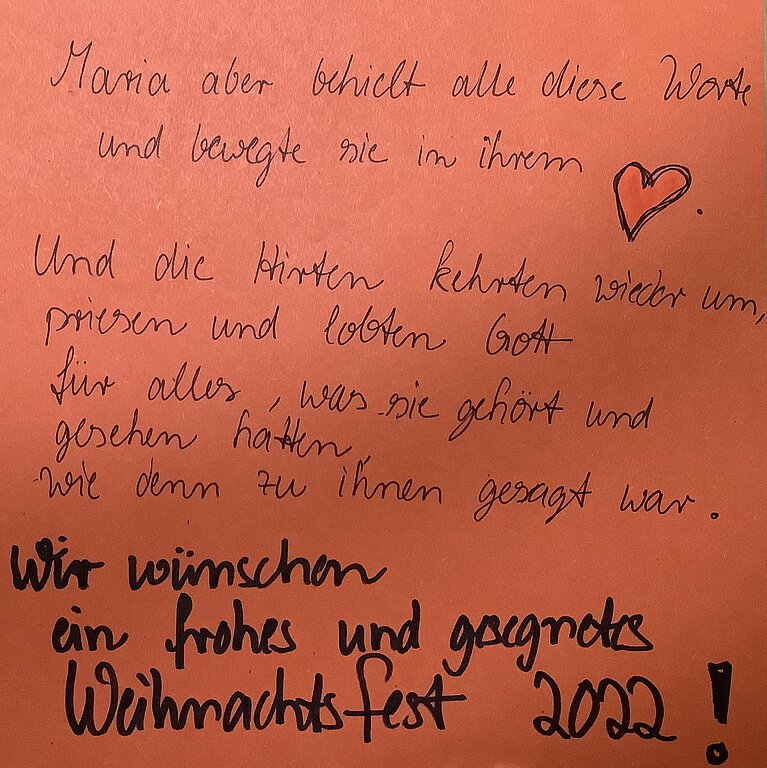 Maria aber behielt alle diese Worte
und bewegte sie in ihrem ♥.
Und die Hirten kehrten wieder um,
priesen und lobten Gott
für alles, was sie gehört und
gesehen hatten,
wie denn zu ihnen gesagt war.
Wir wünschen
ein frohes und gesegnetes
Weihnachtsfest 2022!